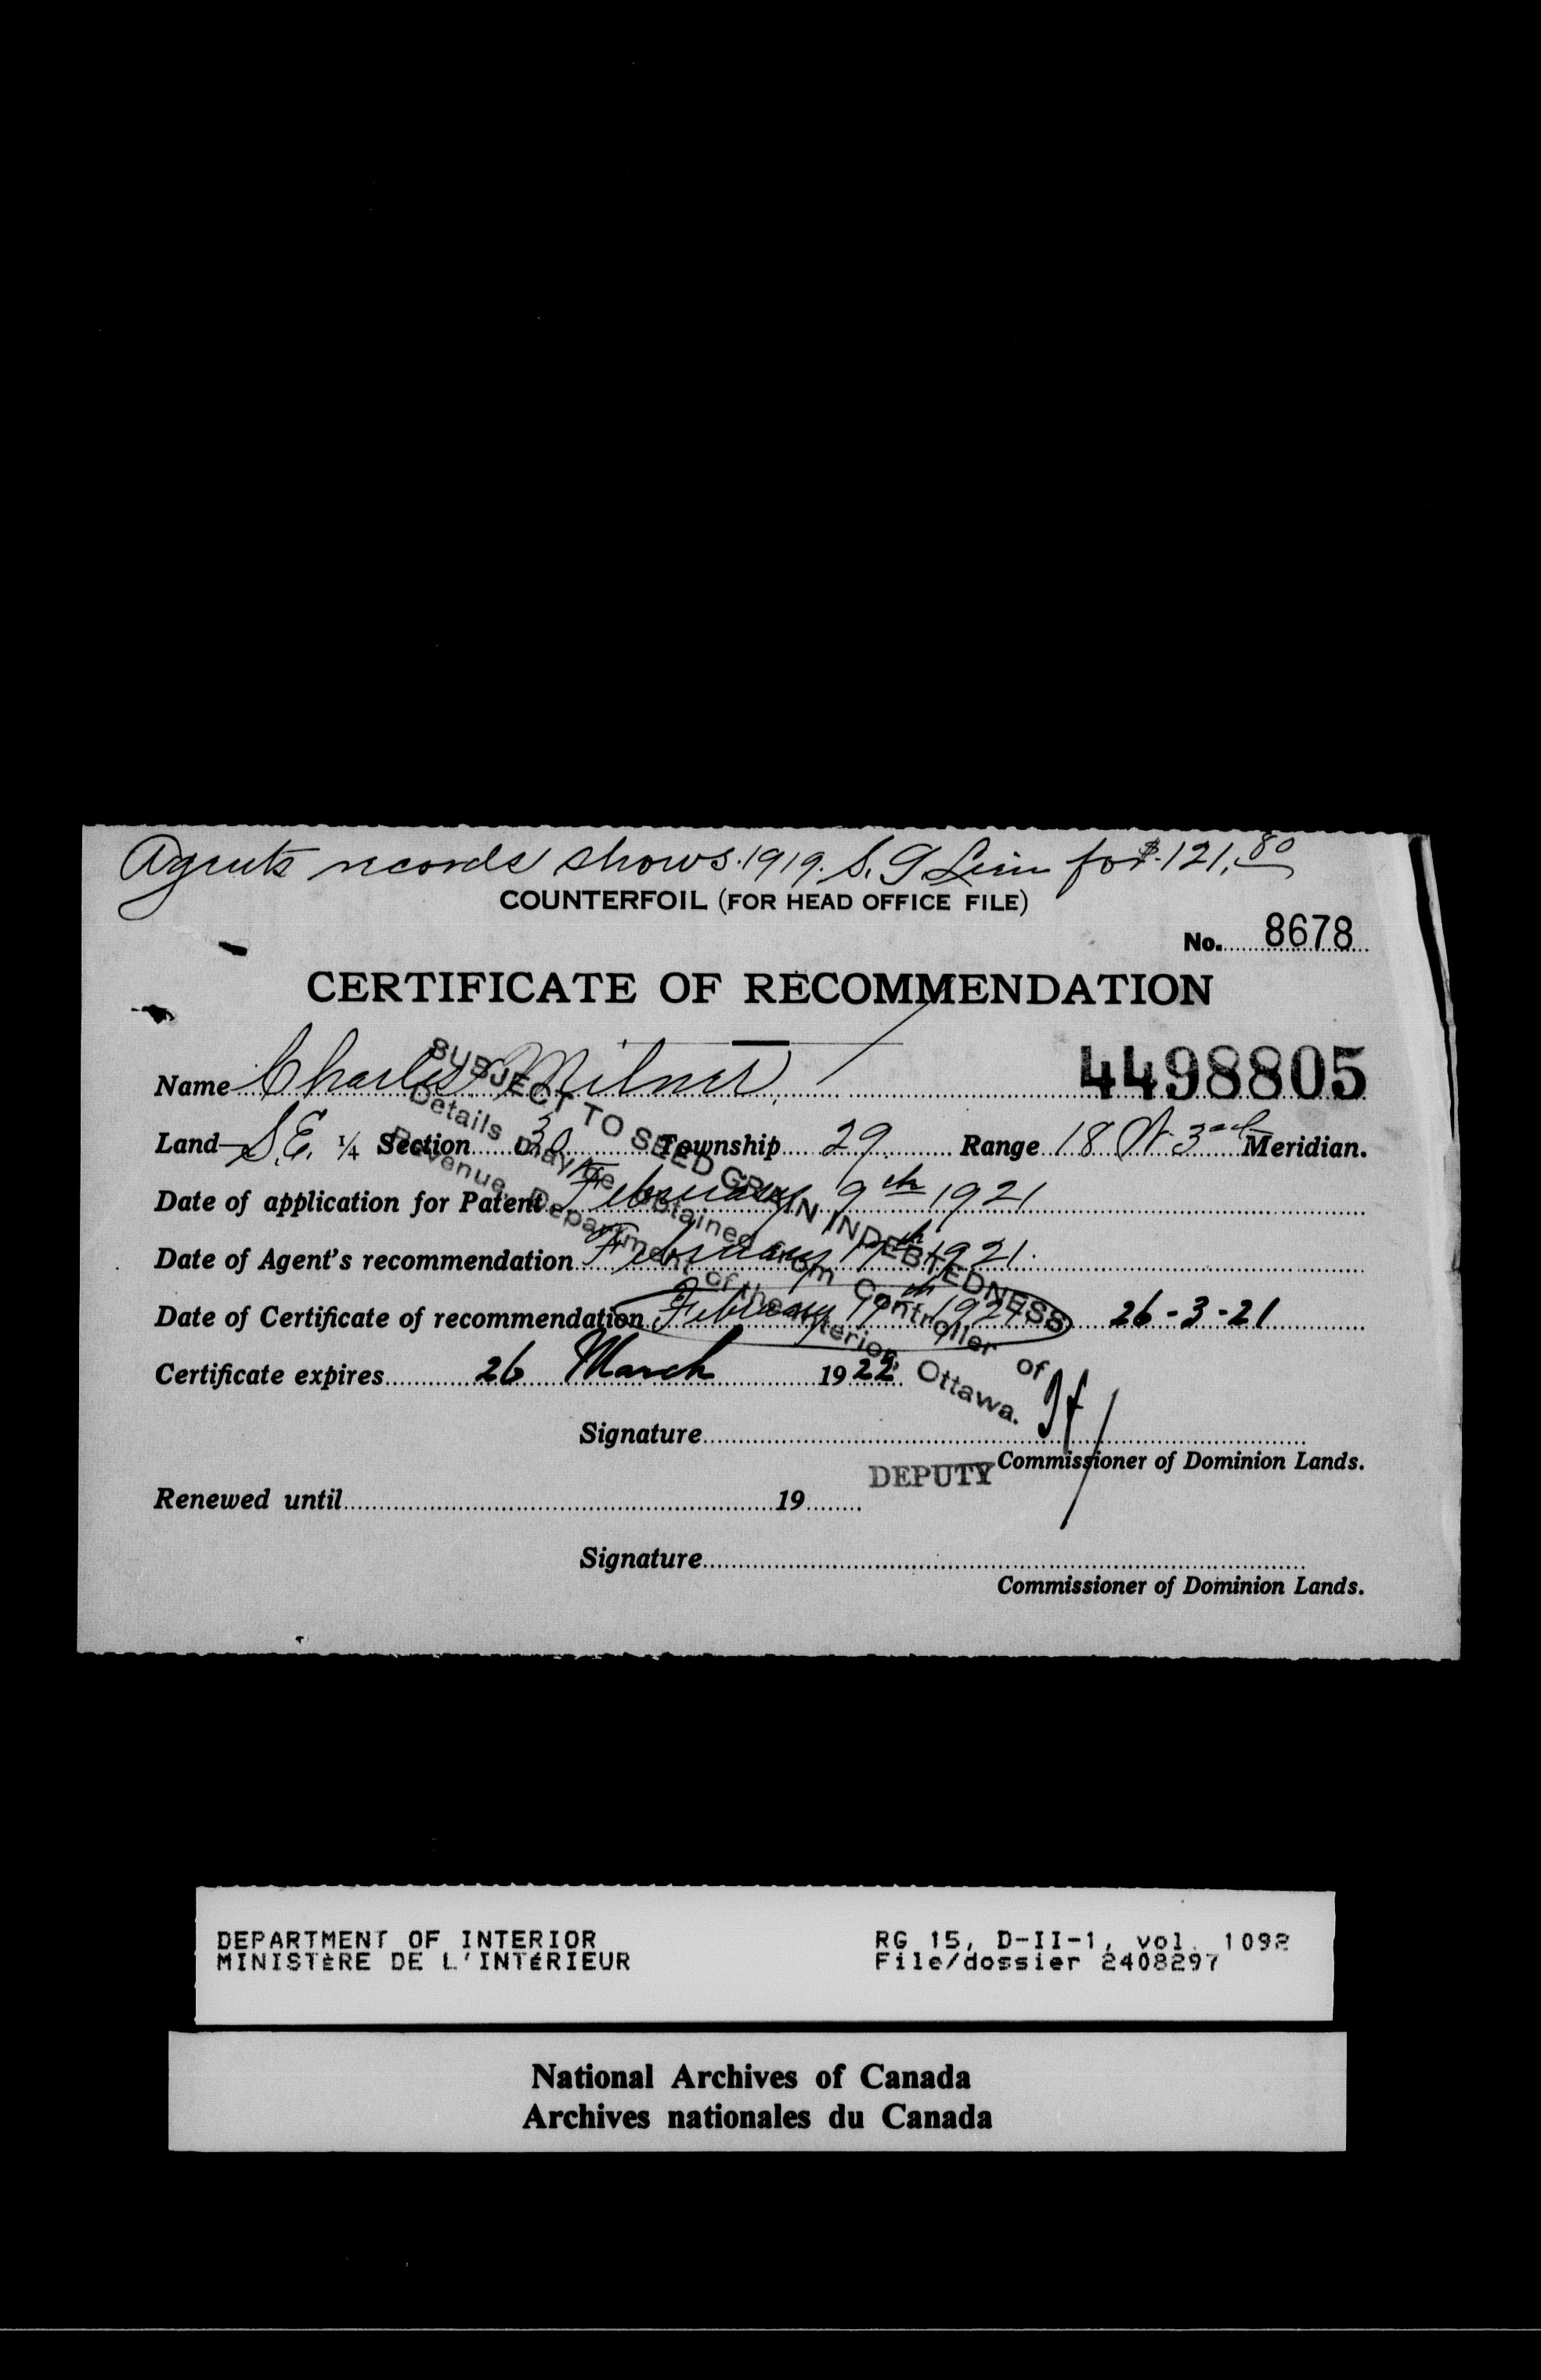 Agents records shows. 1919. S. G Lien for $121.80
COUNTERFOIL (FOR HEAD OFFICE FILE)
No. 8678
CERTIFICATE OF RECOMMENDATION
Name Charles Milner.
4498805
Land—S.E. ¼ Section 30 Township 29. Range 18 W. 3rd Meridian.
Date of application for Patent February 9th 1921
Date of Agent's recommendation February 19th 1921.
Date of Certificate of recommendation February 19th 1921 26-3-21
Certificate expires 26 March 1922
SUBJECT TO SEED GRAIN INDEBTEDNESS
Details may be obtained from Controller of
Revenue, Department of the Interior, Ottawa.
Signature
DEPUTY Commissioner of Dominion Lands.
Renewed until 19
Signature
Commissioner of Dominion Lands.
DEPARTMENT OF INTERIOR
MINISTÈRE DE L'INTÉRIEUR
RG 15, D-II-1, vol. 1092
File/dossier 2408297
National Archives of Canada
Archives nationales du Canada